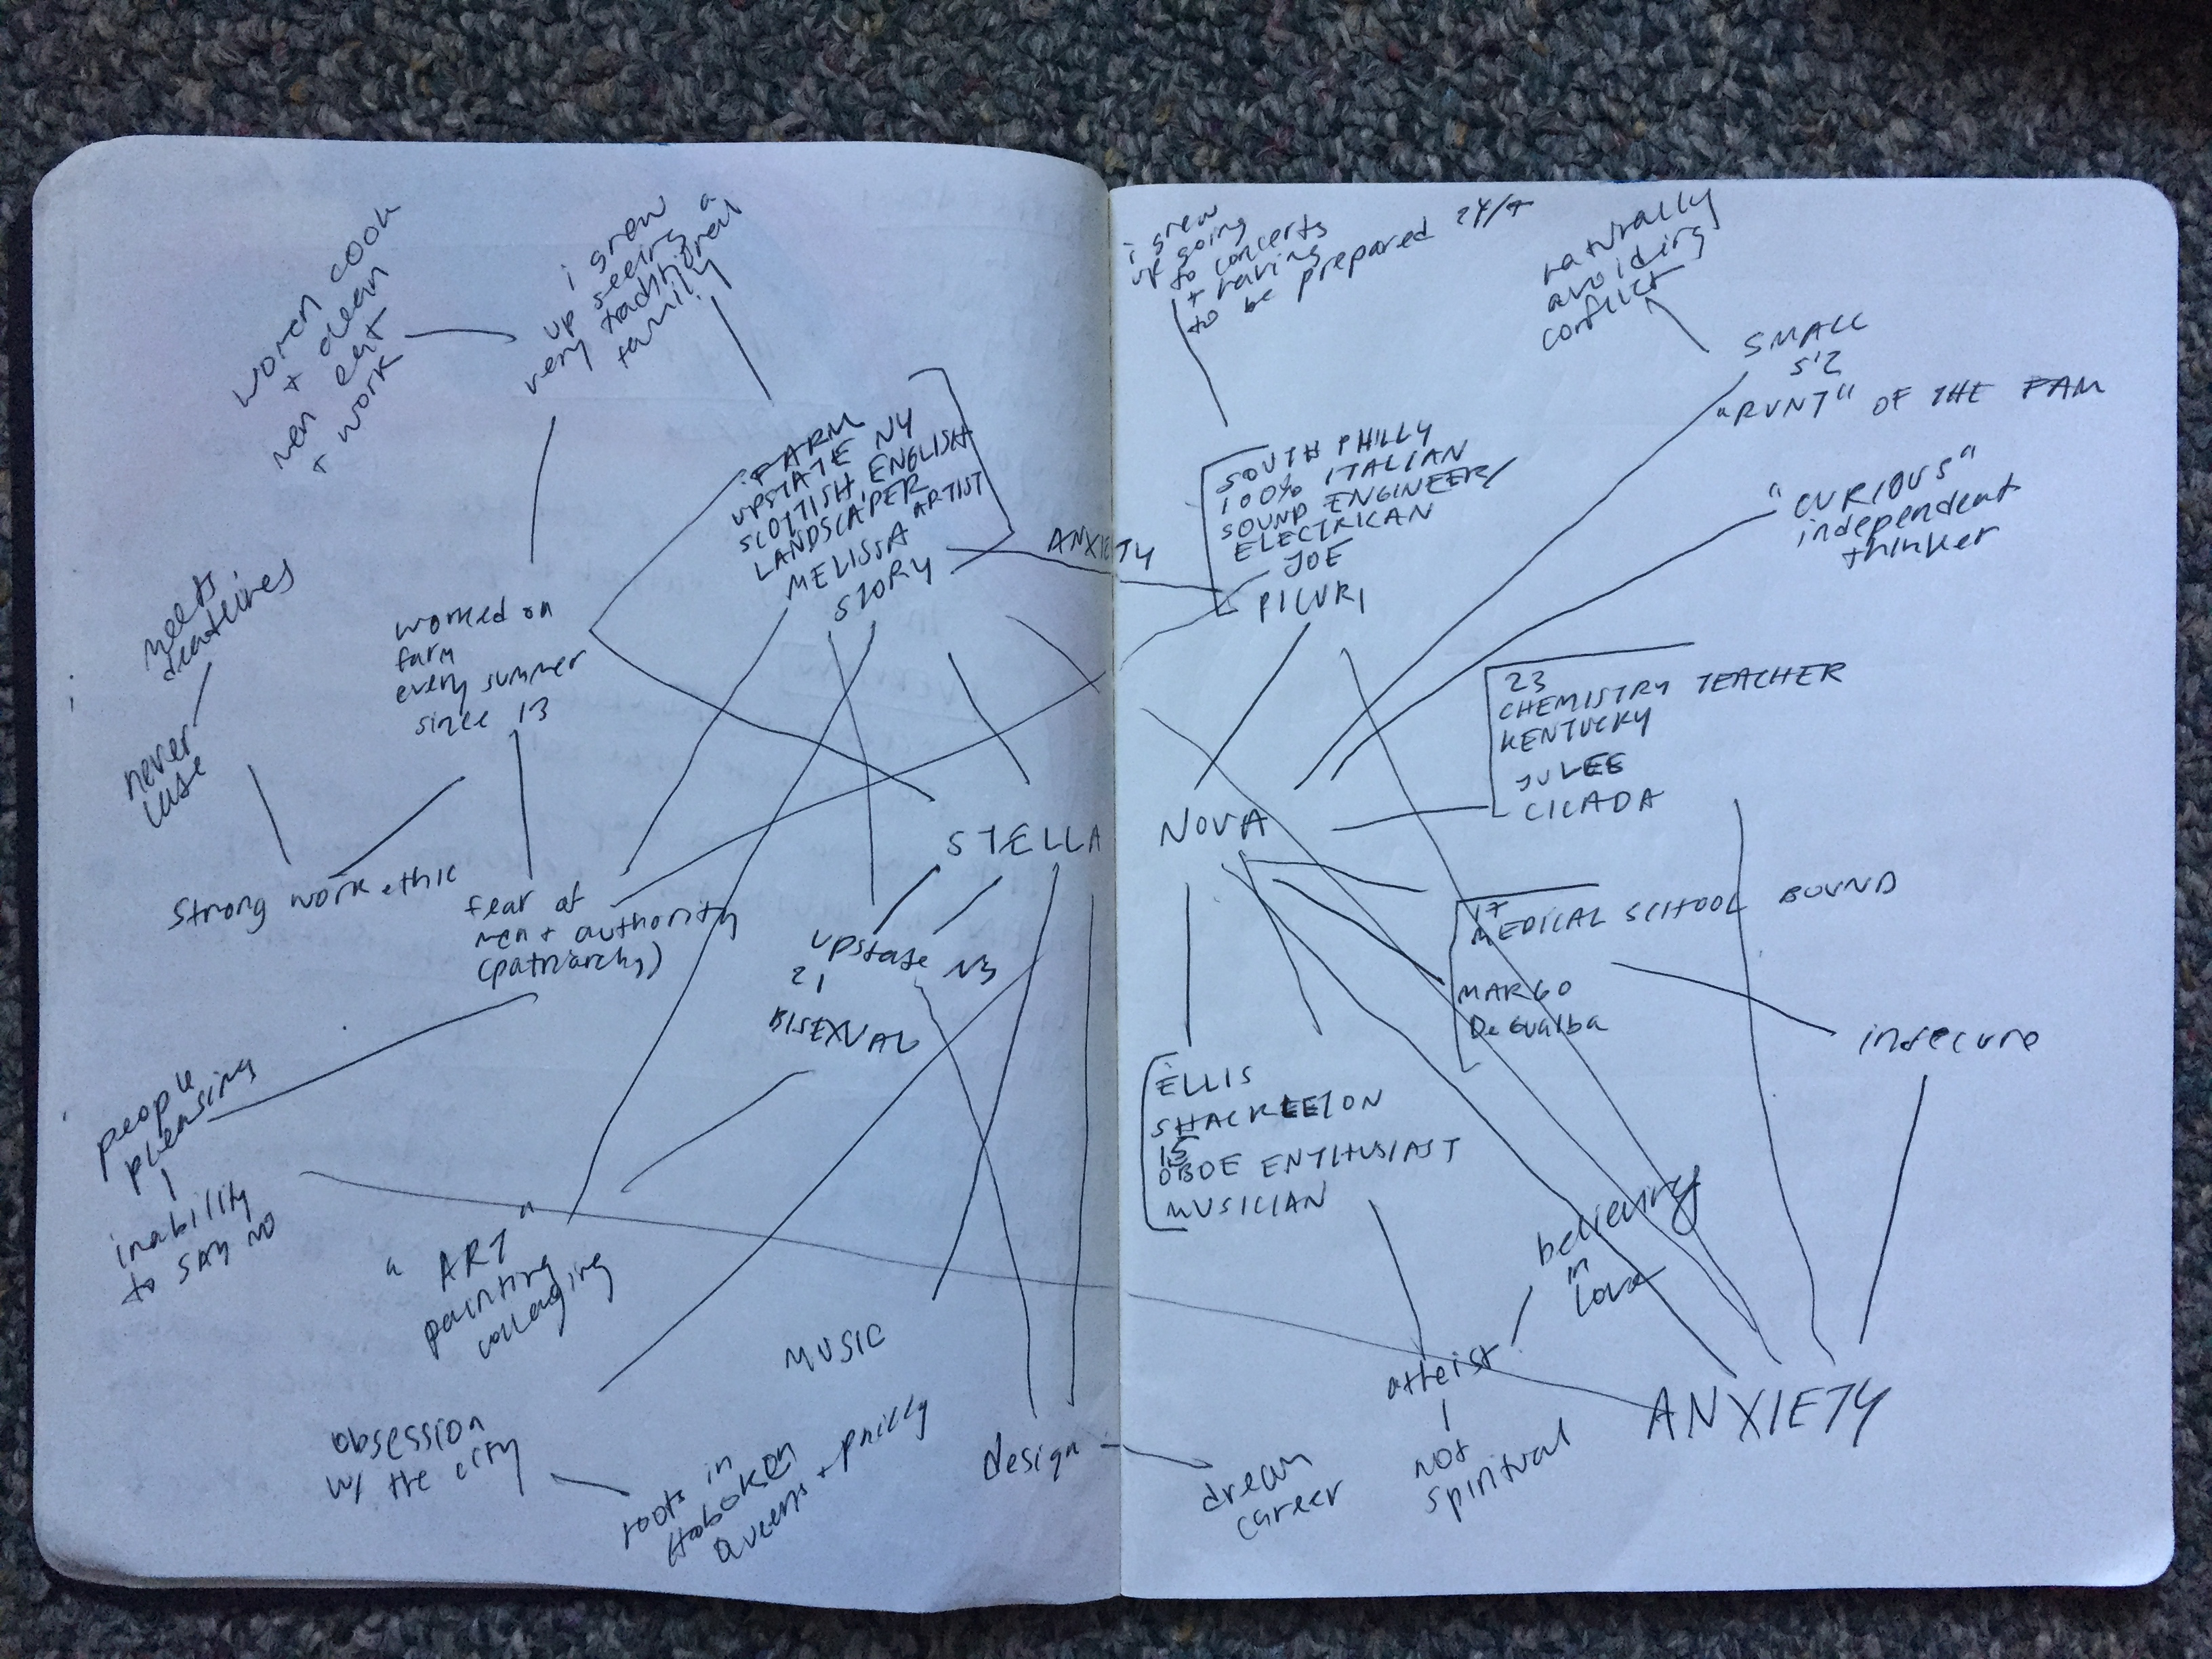 women cook
+ clean
men eat
+ work
i grew
up seeing a
very traditional
family
FARM
UPSTATE NY
SCOTTISH, ENGLISH
LANDSCAPER
ARTIST
MELISSA
STORY
ANXIETY
meets
deadlines
never
late
worked on
farm
every summer
since 13
strong work ethic
fear of
men + authority
(patriarchy)
STELLA
upstate NY
21
BISEXUAL
people
pleasing
inability
to SAY NO
"ART"
painting
collaging
MUSIC
obsession
w/ the city
roots in
Hoboken
Queens + philly
design
i grew
up going
to concerts
+ having
to be prepared 24/7
naturally
avoiding
conflict
SMALL
5'2
"RUNT" OF THE FAM
SOUTH PHILLY
100% ITALIAN
SOUND ENGINEER/
ELECTRICAN
JOE
"CURIOUS"
independent
thinker
23
CHEMISTRY TEACHER
KENTUCKY
JULEE
CICADA
NOVA
17
MEDICAL SCHOOL BOUND
MARGO
DeGualba
insecure
ELLIS
SHACKLETON
15
OBOE ENTHUSIAST
MUSICIAN
believing
in
love
atheist
not
spiritual
ANXIETY
dream
career